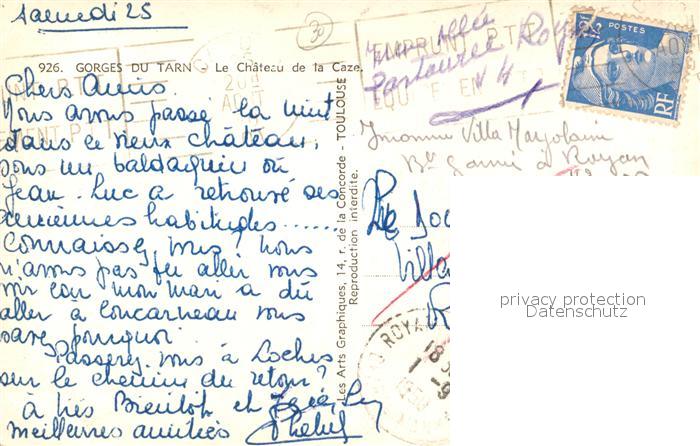 Samedi 25
30
926. GORGES DU TARN - Le Château de la Caze.
Chers Amis.
Nous avons passé la nuit
dans ce vieux château,
sous un baldaquin où
Jean-Luc a retrouvé ses
anciennes habitudes......
Connaissez vous? Nous
n'avons pas pu aller vous
voir car mon mari a dû
aller à Concarneau vous
savez pourquoi.
Passerez vous à Loches
sur le chemin du retour?
à très Bientôt et
meilleures amitiés
Les Arts Graphiques, 14, r. de la Concorde - TOULOUSE
Reproduction interdite.
Allée
Pastourelle Royan
N 4
EMPRUNT P.T.T
POSTES
RF
Villa Marjolaine
Bd Garnier à Royan
Villa
ROYAN
18
1 -9
privacy protection
Datenschutz